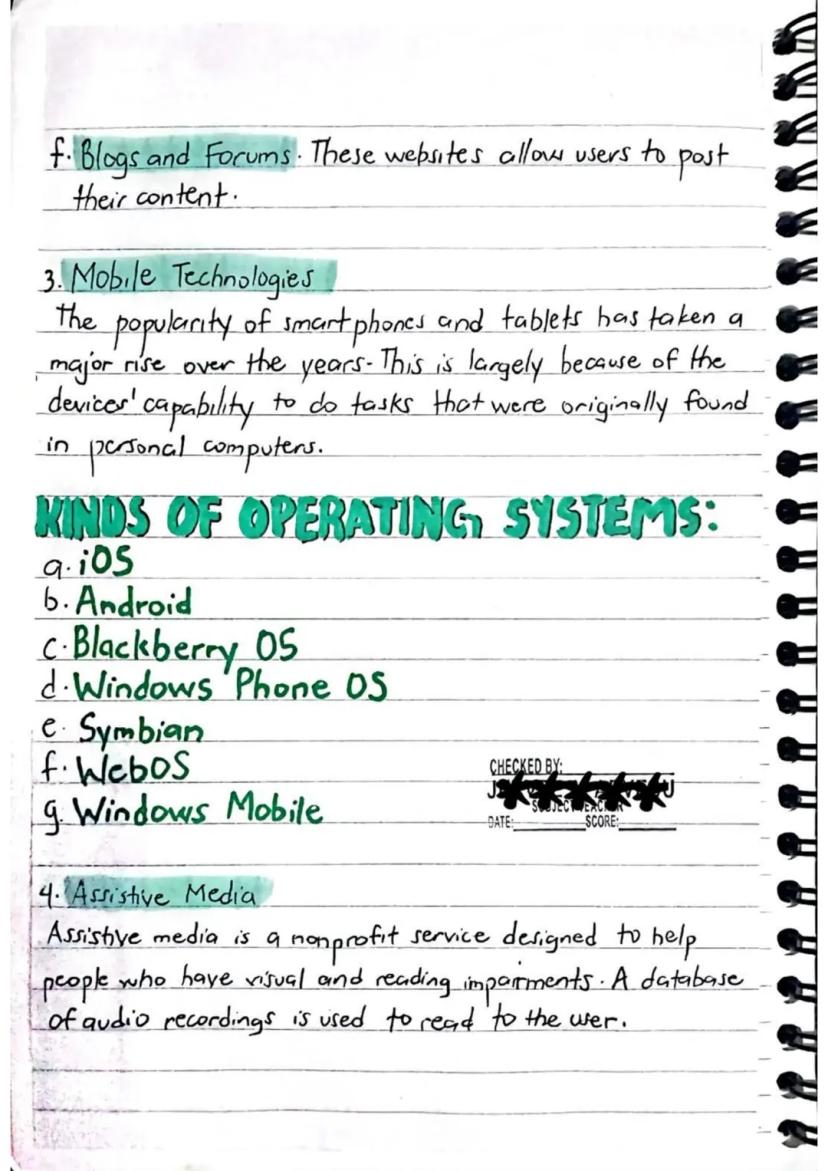 f. Blogs and Forums. These websites allow users to post
their content.
3. Mobile Technologies
The popularity of smartphones and tablets has taken a
major rise over the years. This is largely because of the
devices' capability to do tasks that were originally found
in personal computers.
KINDS OF OPERATING SYSTEMS:
a. iOS
b. Android
c. Blackberry OS
d. Windows Phone OS
e. Symbian
f. WebOS
g. Windows Mobile
CHECKED BY:
SUBJECT TEACHER
DATE: SCORE:
4. Assistive Media
Assistive media is a nonprofit service designed to help
people who have visual and reading impairments. A database
of audio recordings is used to read to the user.